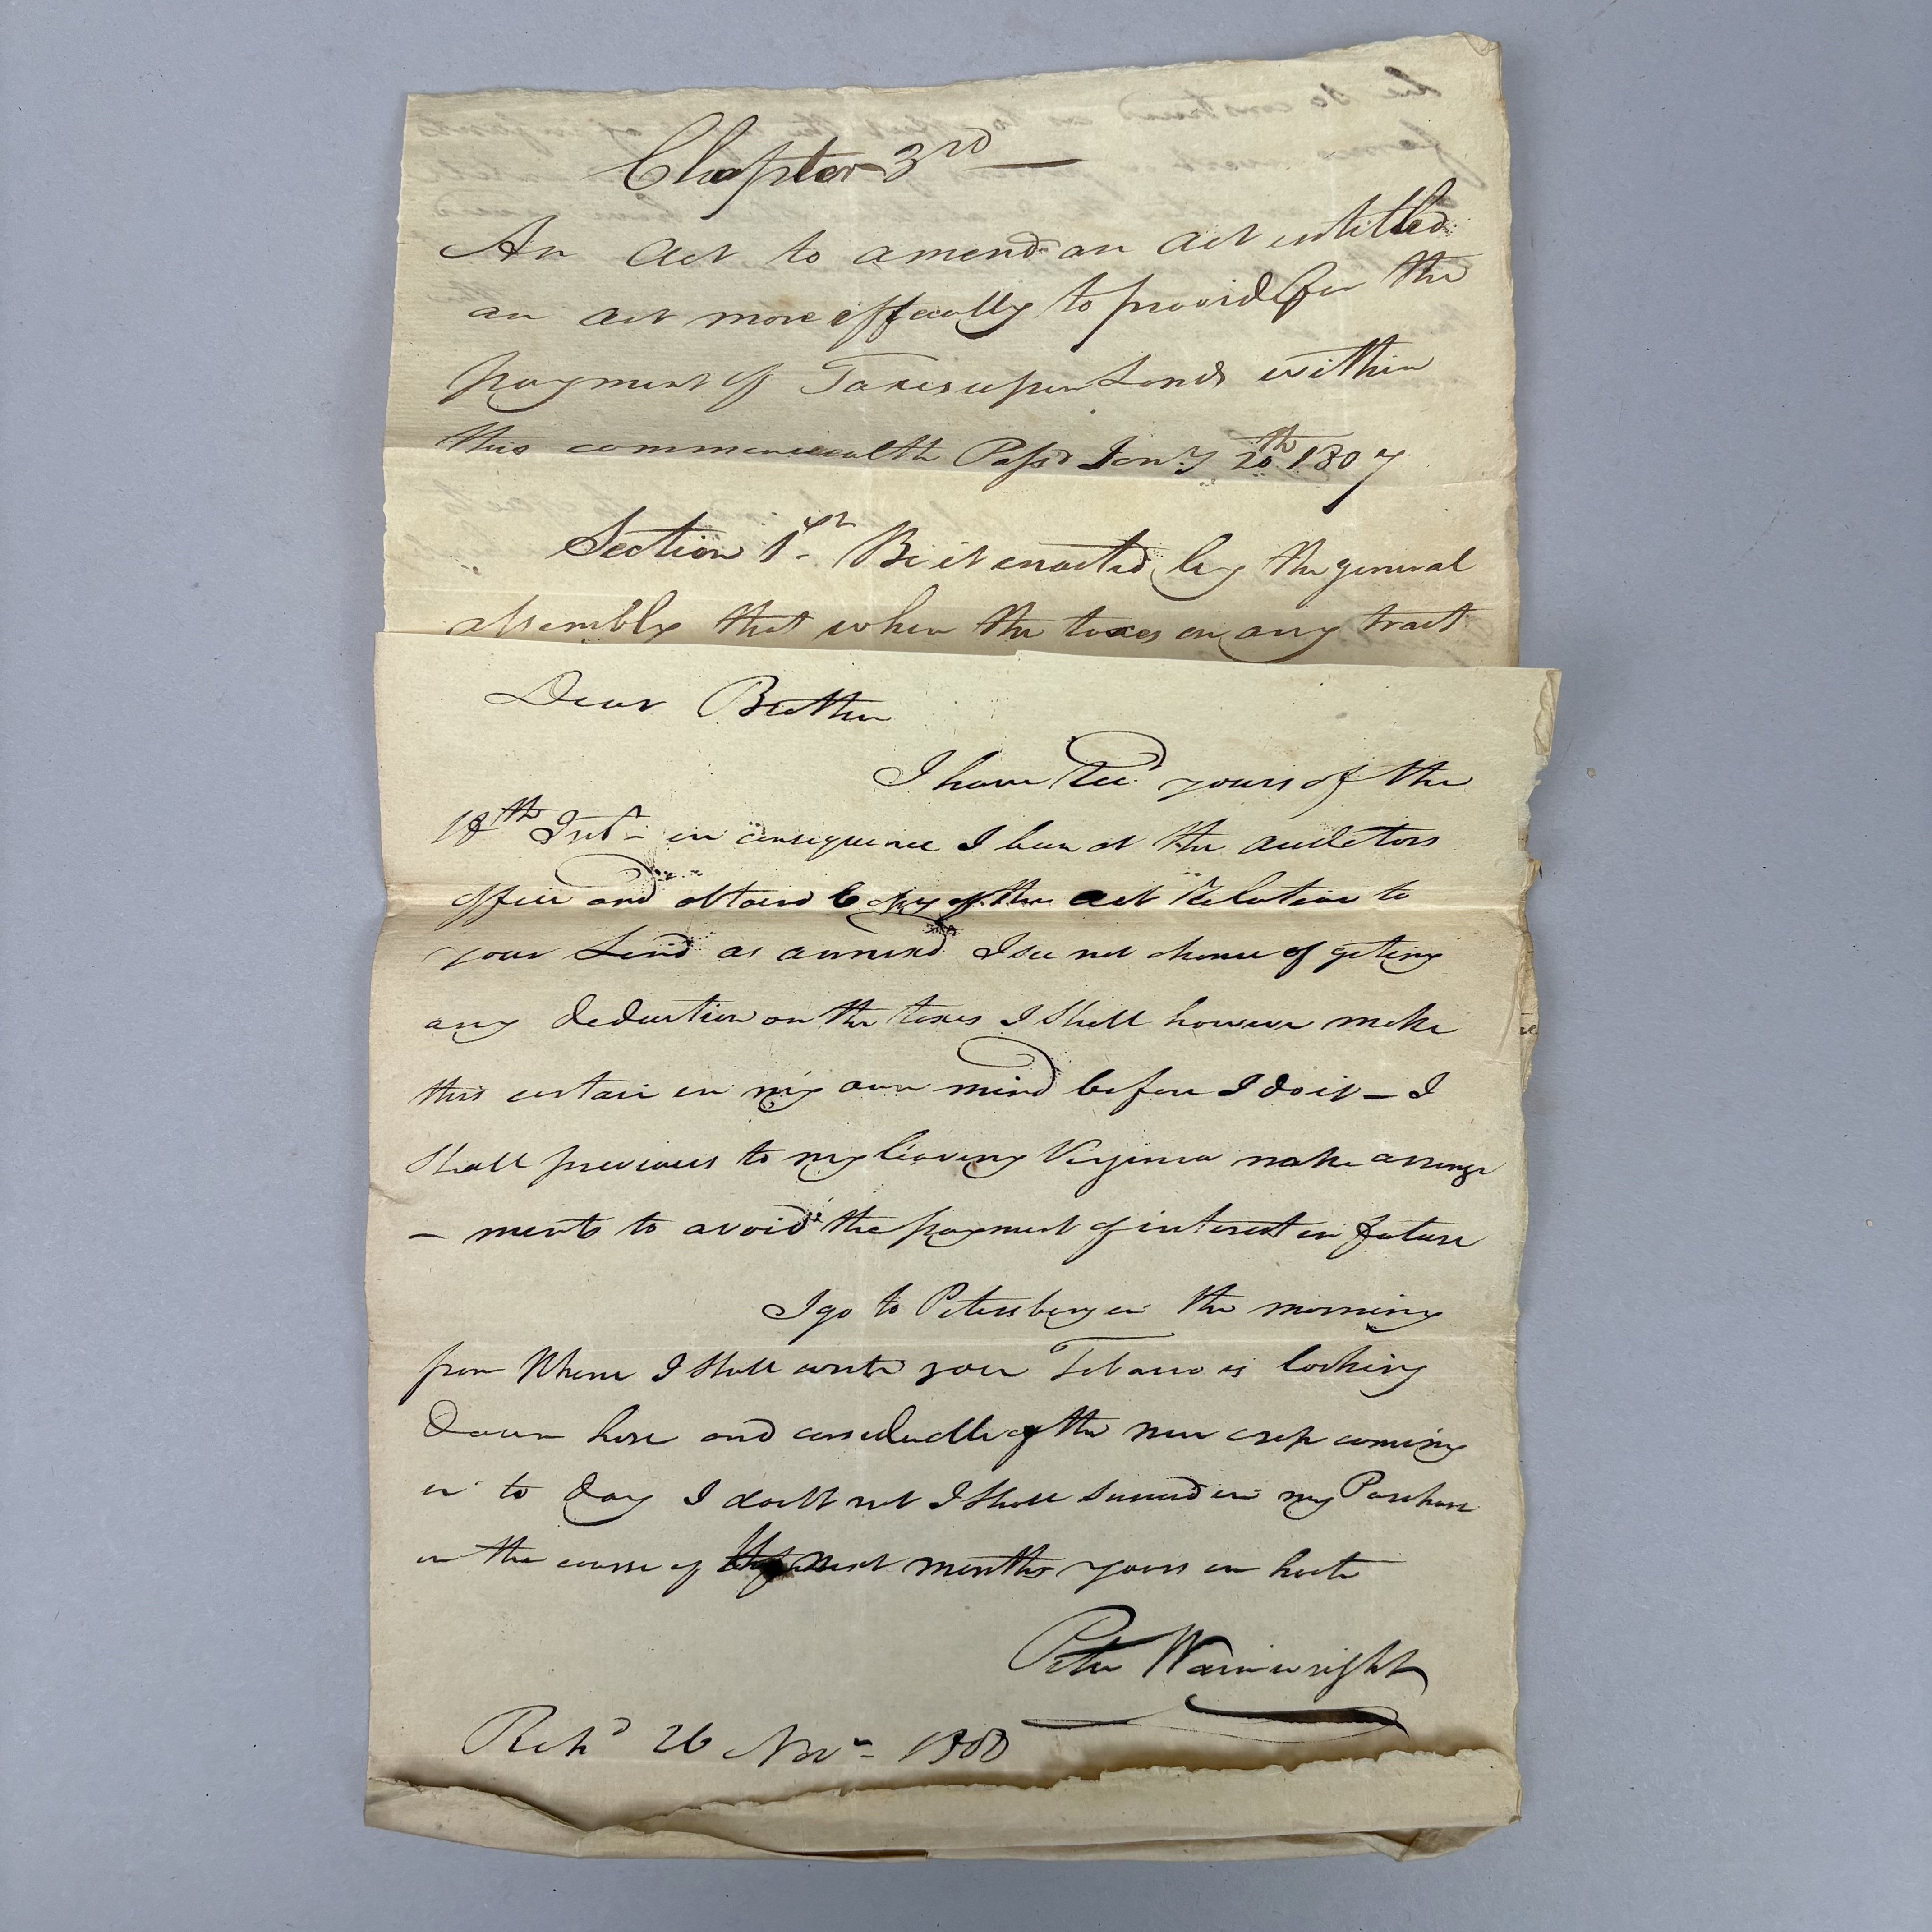 Chapter 3rd
An Act to amend an act intitled
an act more effecually to provide for the
payment of Taxes upon Lands within
this commonwealth Passd Jany 20th 1807
Section 1st Be it enacted by the general
assembly that when the taxes on any tract
Dear Brother
I have Recd yours of the
18th Inst - in consequence I been at the auditors
office and obtaind Copy of the act Relative to
your Land as annexd I see not chance of geting
any deduction on the taxes I Shall however make
this certain in my own mind before I do it - I
Shall previous to my leaving Virginia make arrange
- ments to avoid the payment of interest in future
I go to Petersburg in the morning
from Where I Shall write you Tobacco is looking
down here and of the new crop coming
in to day I doubt not I Shall Succeed in my Purchase
in the course of next months yours in haste
Peter Wainwright
Rchd 26 Novr - 1808